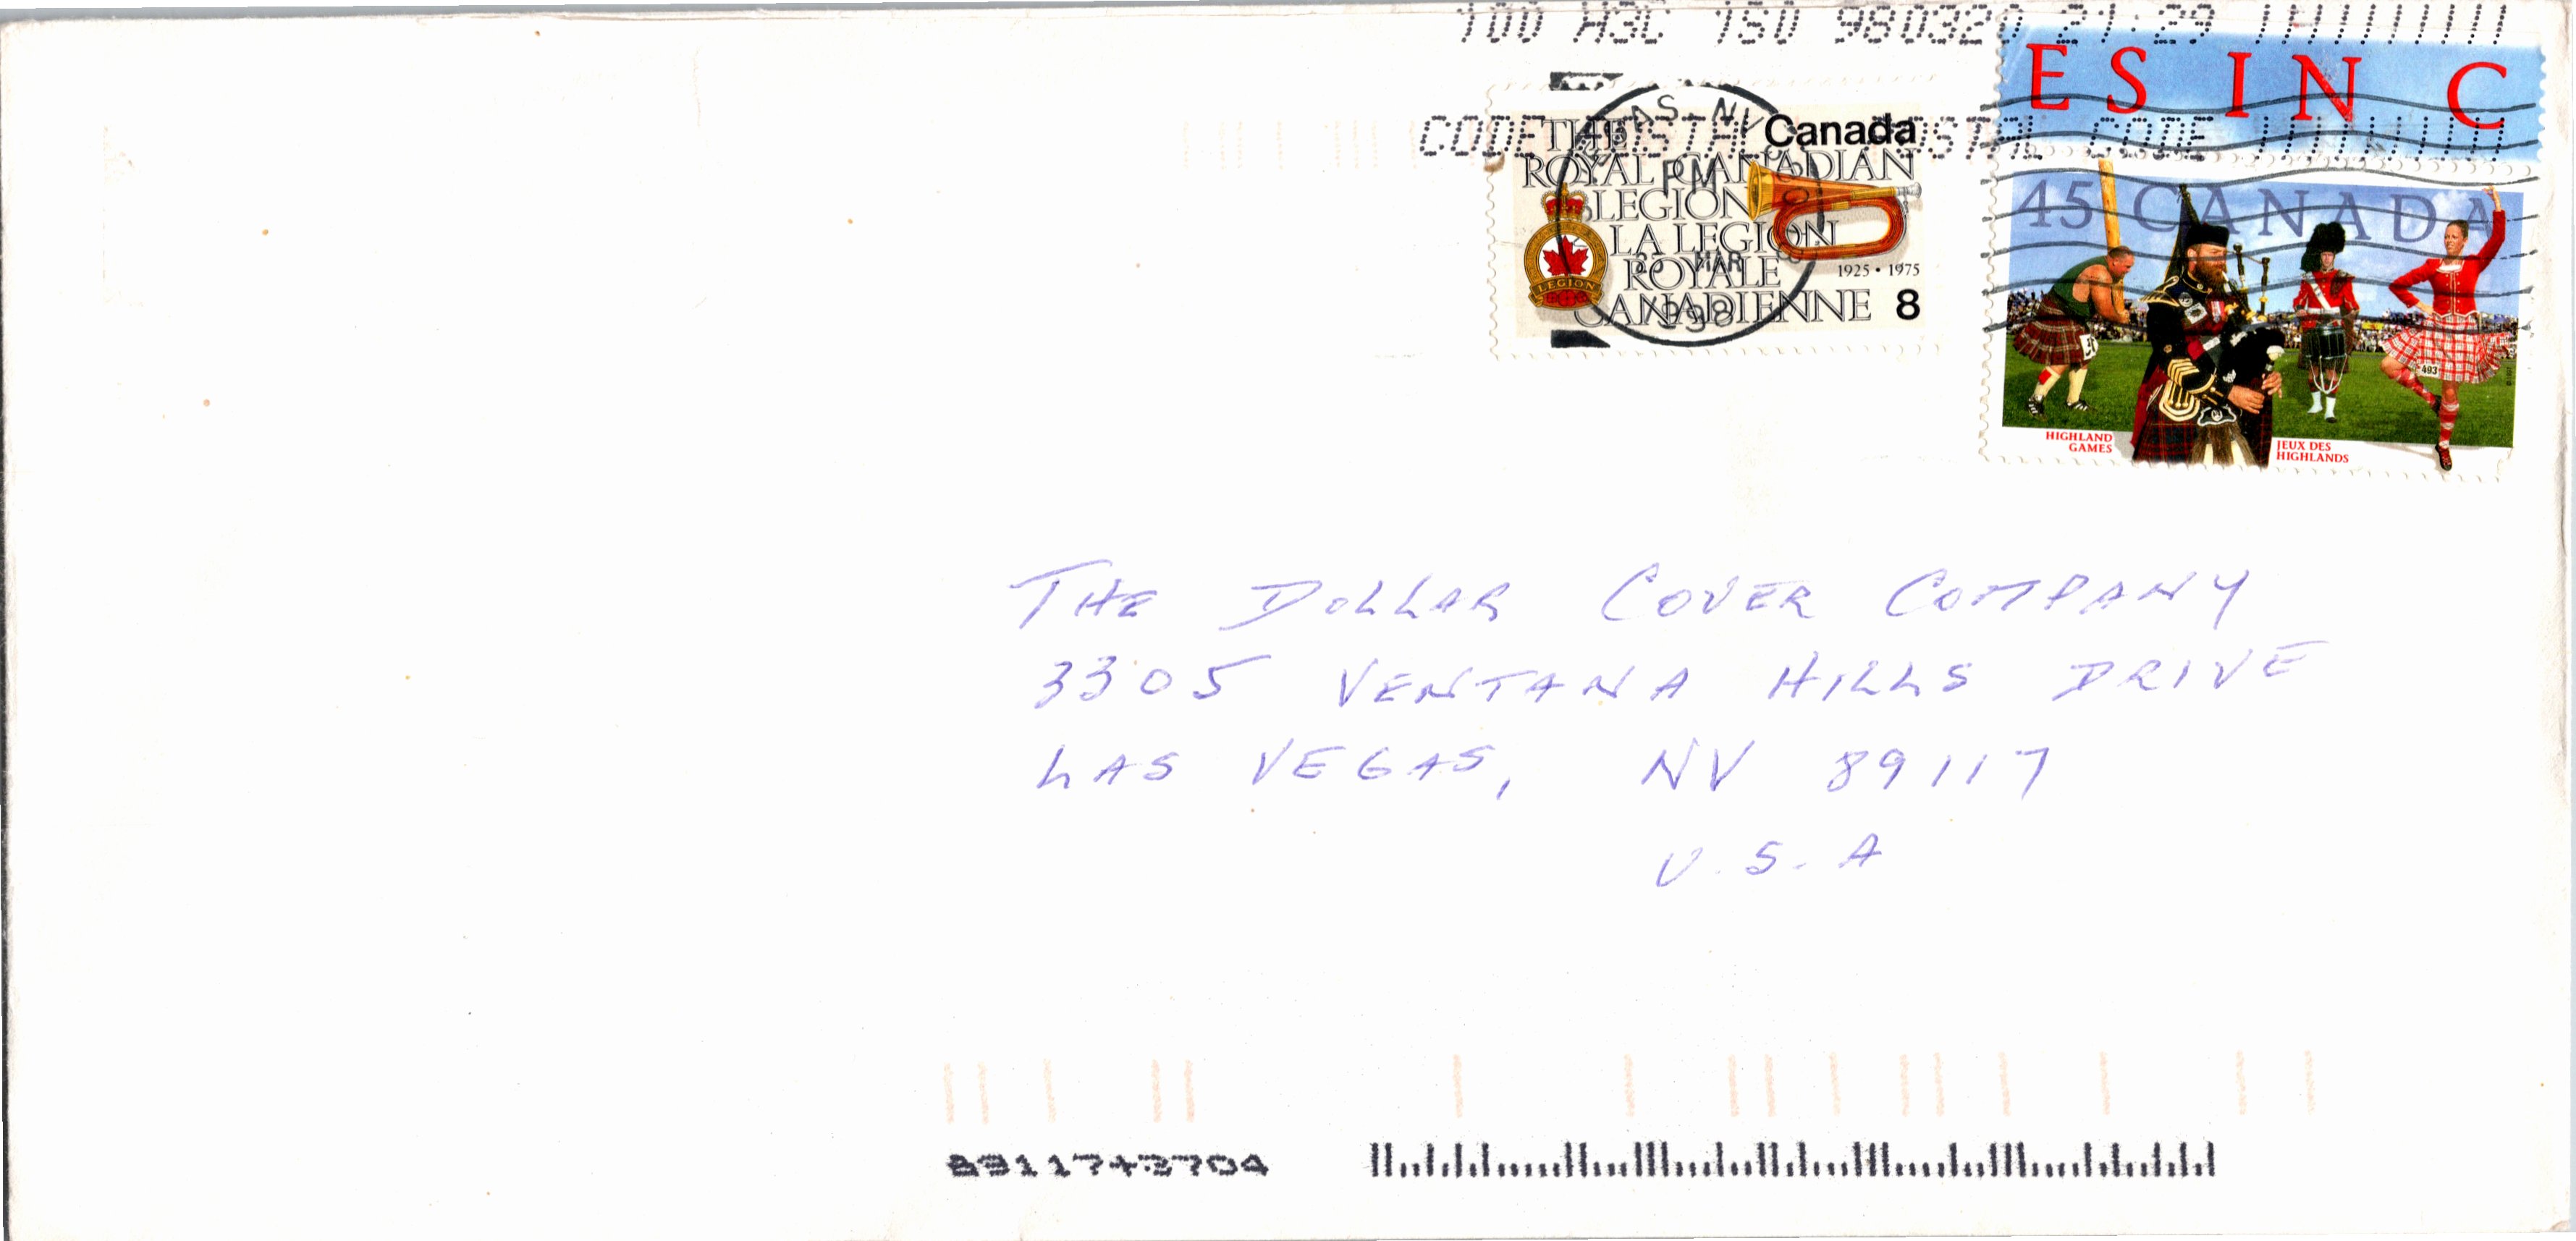 100 A3C 1S0 980320 21:29
CODE POSTAL POSTAL CODE
ES IN C
THE Canada
ROYAL CANADIAN
LEGION
LA LEGION
ROYALE
CANADIENNE 8
1925 • 1975
LEGION
PM
MAR
1998
45 CANADA
493
HIGHLAND
GAMES
JEUX DES
HIGHLANDS
THE DOLLAR COVER COMPANY
3305 VENTANA HILLS DRIVE
LAS VEGAS, NV 89117
U.S.A